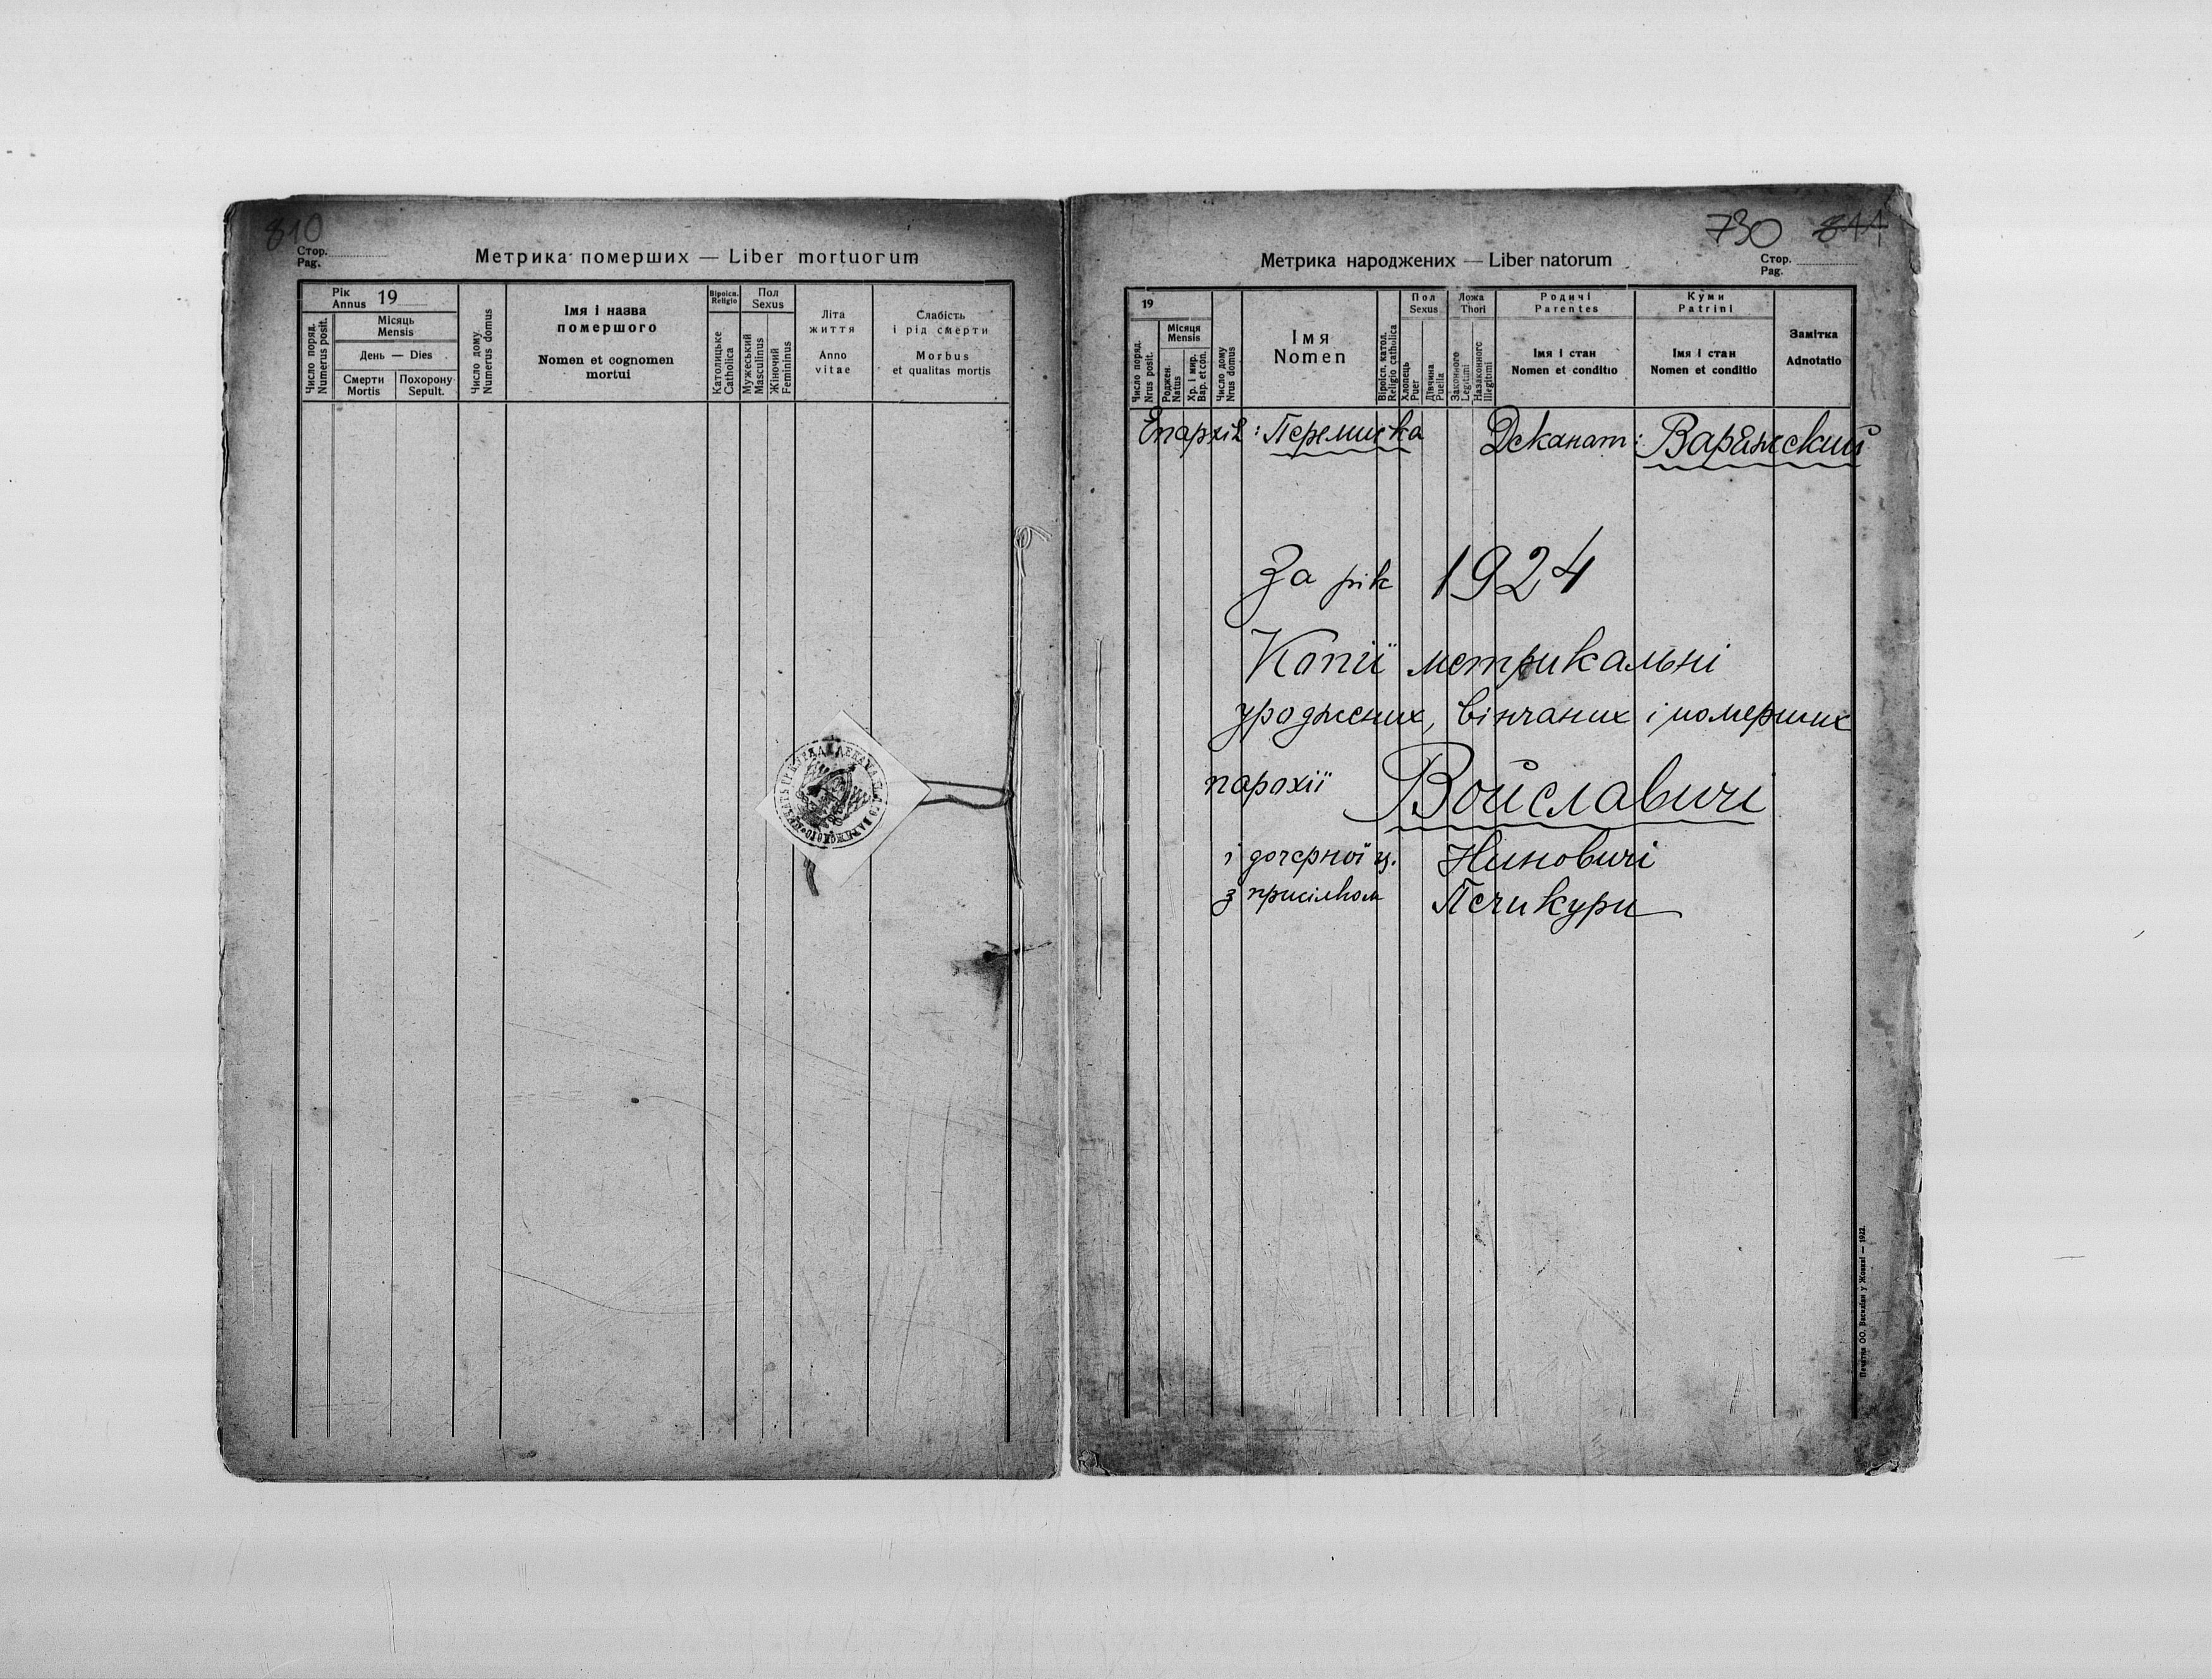 810
Стор.
Pag.
Метрика померших — Liber mortuorum
Рік
Annus 19
Число поряд.
Numerus posit.
Місяць
Mensis
День — Dies
Смерти
Mortis
Похорону
Sepult.
Число дому
Numerus domus
Імя і назва
помершого
Nomen et cognomen
mortui
Віроісп.
Religio
Католицьке
Catholica
Пол
Sexus
Мужеський
Masculinus
Жіночий
Femininus
Літа
життя
Anno
vitae
Слабість
і рід смерти
Morbus
et qualitas mortis
730 811
Стор.
Pag.
Метрика народжених — Liber natorum
19
Число поряд.
Nrus posit.
Місяця
Mensis
Роджен.
Natus
Хр. і мир.
Bap. et con.
Число дому
Nrus domus
Імя
Nomen
Віроісп. катол.
Religio catholica
Пол
Sexus
Хлопець
Puer
Дівчина
Puella
Ложа
Thori
Законного
Legitimi
Назаконного
Illegitimi
Родичі
Parentes
Імя і стан
Nomen et conditio
Куми
Patrini
Імя і стан
Nomen et conditio
Замітка
Adnotatio
Епархія: Перемиска Деканат: Варяжский
За рік 1924
Копії метрикальні
уроджених, вінчаних і померших
парохії Войславичі
і дочерної ц. Ниновичі
з присілком Печикури
Печатня ОО. Василіян у Жовкві — 1922.